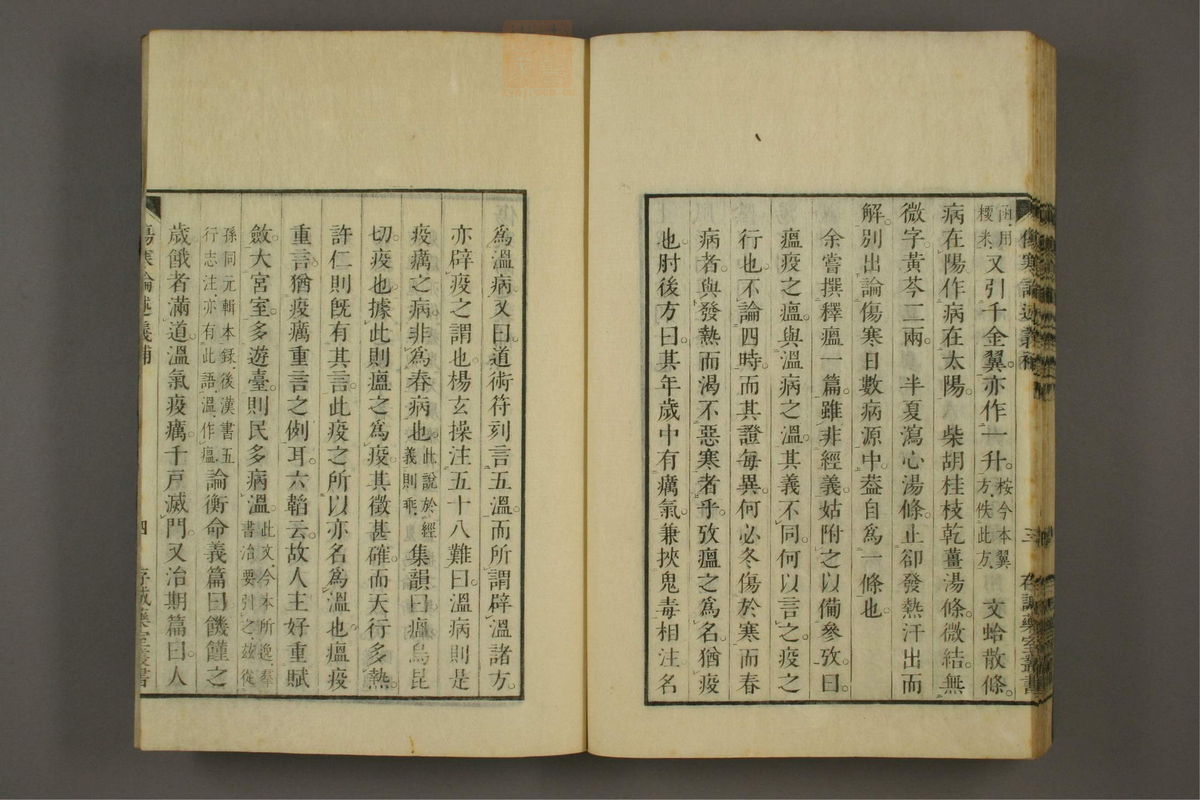 傷寒論述義補 三 存誠藥室叢書
函用稷米又引千金翼亦作一升桉今本翼方佚此方 文蛤散條
病在陽作病在太陽 柴胡桂枝乾薑湯條微結無
微字黃芩二兩 半夏瀉心湯條止卻發熱汗出而
解別出論傷寒日數病源中蓋自爲一條也
余嘗撰釋瘟一篇雖非經義姑附之以備參攷曰
瘟疫之瘟與溫病之溫其義不同何以言之疫之
行也不論四時而其證每異何必冬傷於寒而春
病者與發熱而渴不惡寒者乎攷瘟之爲名猶疫
也肘後方曰其年歲中有癘氣兼挾鬼毒相注名
爲溫病又曰道術符刻言五溫而所謂辟溫諸方
亦辟疫之謂也楊玄操注五十八難曰溫病則是
疫癘之病非爲春病也此說於經義則乖集韻曰瘟烏昆
切疫也據此則瘟之爲疫其徵甚確而天行多熱
許仁則旣有其言此疫之所以亦名爲溫也瘟疫
重言猶疫癘重言之例耳六韜云故人主好重賦
斂大宮室多遊臺則民多病溫此文今本所逸羣書治要引之茲從
孫同元輯本錄後漢書五行志注亦有此語溫作瘟論衡命義篇曰饑饉之
歲餓者滿道溫氣疫癘千戶滅門又治期篇曰人
傷寒論述義補 四 存誠藥室叢書